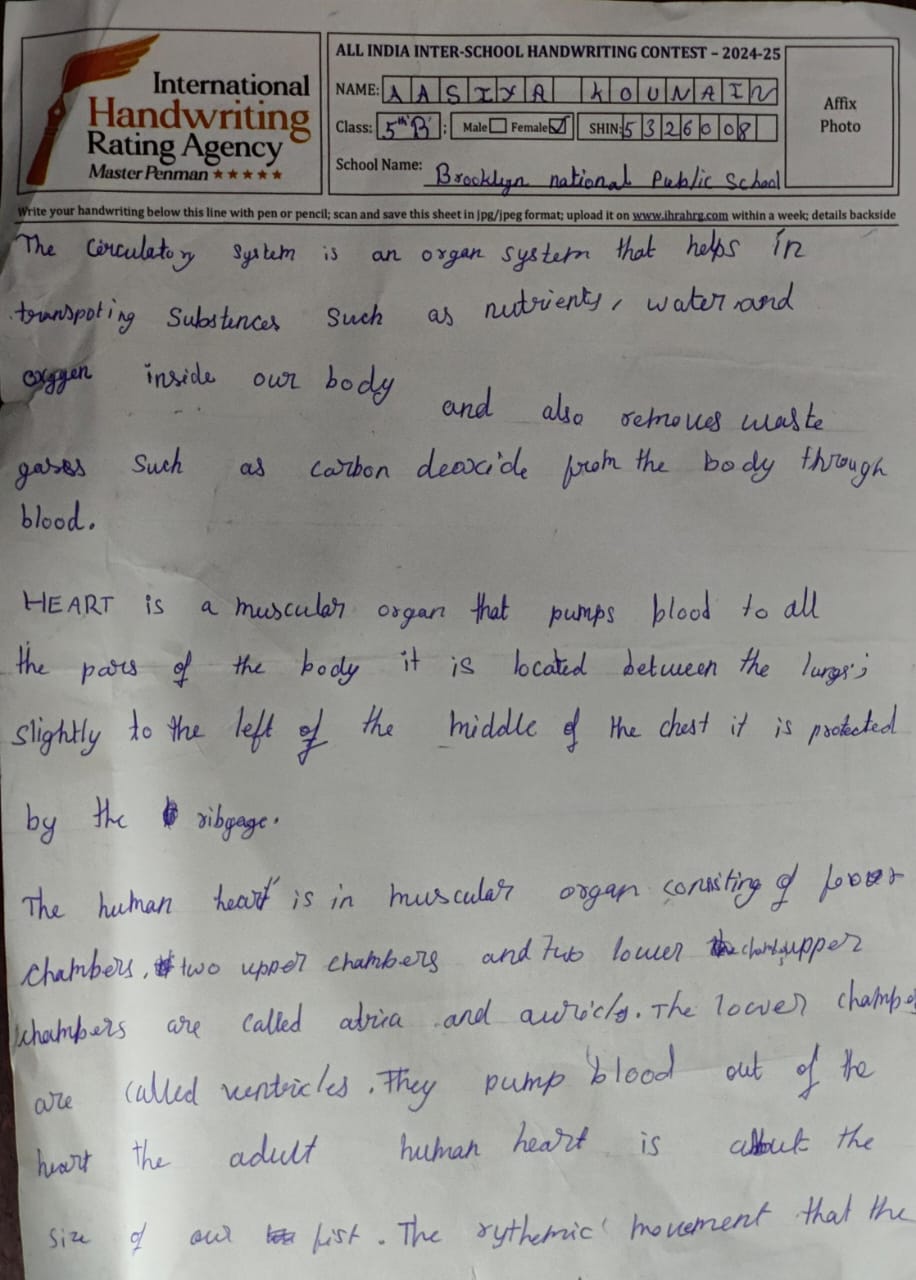 International
Handwriting
Rating Agency
Master Penman ★★★★★
ALL INDIA INTER-SCHOOL HANDWRITING CONTEST – 2024-25
NAME: AASIYA KOUNAIN
Class: 5th 'B' : Male Female ✓ SHIN: 5326008
School Name: Brooklyn national Public School
Affix
Photo
Write your handwriting below this line with pen or pencil; scan and save this sheet in jpg/jpeg format; upload it on www.ihrahrg.com within a week; details backside
The Circulatory System is an organ system that helps in
transpoting Substences Such as nutrients, water and
oxygen inside our body
and also removes waste
gases Such as carbon deoxcide from the body through
blood.
HEART is a muscular organ that pumps blood to all
the pars of the body it is located between the lungs;
slightly to the left of the middle of the chest it is protected
by the ribgage.
The human heart is in muscular organ consisting of
chambers, two upper chambers and two lower upper
chambers are called atria and The lower chambe
are called ventricles. They pump blood out of the
heart the adult human heart is about the
size of our fist. The rythemic movement that the